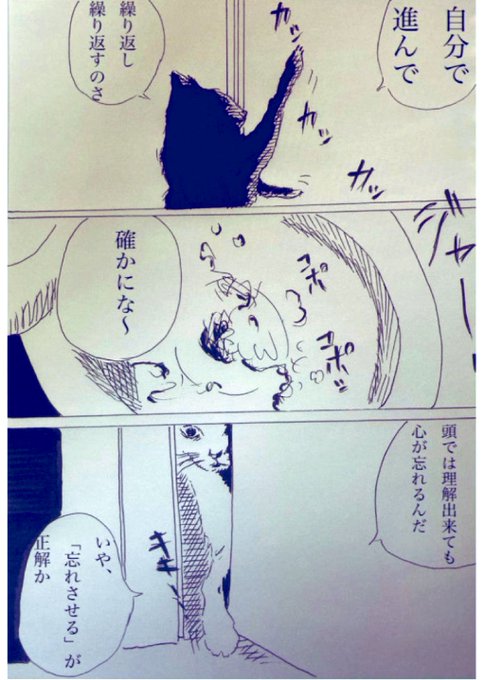 自分で
進んで
カッ
カッ
カッ
繰り返し
繰り返すのさ
ジャー
コポ
コポッ
確かにな～
頭では理解出来ても
心が忘れるんだ
キキ
いや、
「忘れさせる」が
正解か